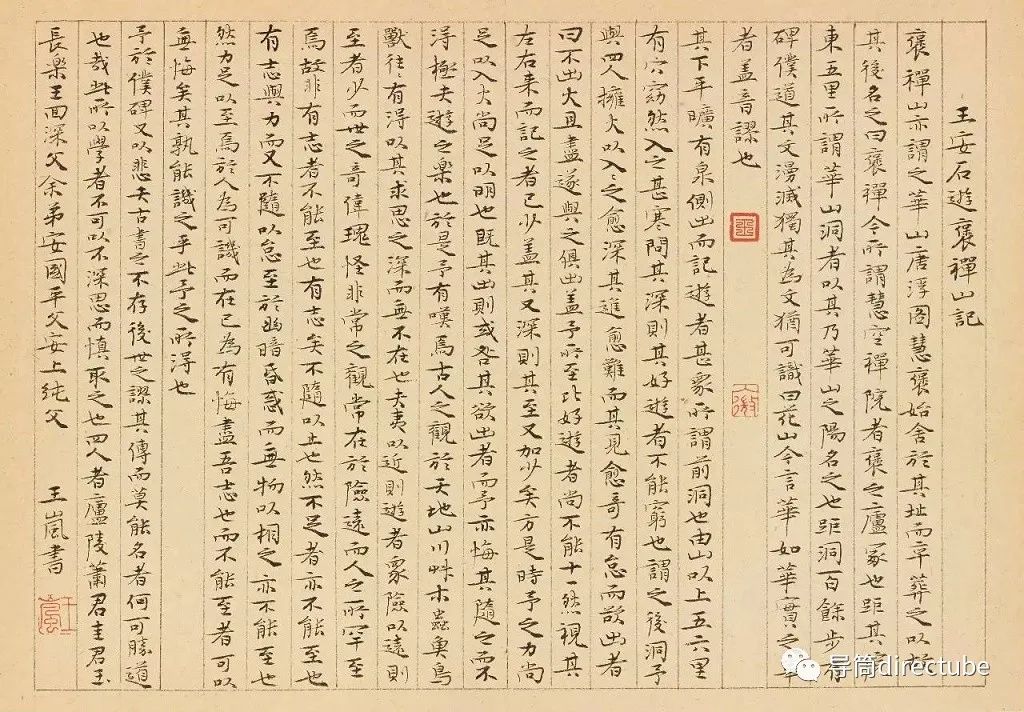 王安石遊褒禪山記
褒禪山亦謂之華山唐浮圖慧褒始舍於其址而卒葬之以故
其後名之曰褒禪今所謂慧空禪院者褒之廬冢也距其院
東五里所謂華山洞者以其乃華山之陽名之也距洞百餘步有
碑僕道其文漫滅獨其為文猶可識曰花山今言華如華實之華
者蓋音謬也
其下平曠有泉側出而記遊者甚眾所謂前洞也由山以上五六里
有穴窈然入之甚寒問其深則其好遊者不能窮也謂之後洞予
與四人擁火以入〻之愈深其進愈難而其見愈奇有怠而欲出者
曰不出火且盡遂與之俱出蓋予所至比好遊者尚不能十一然視其
左右来而記之者已少蓋其又深則其至又加少矣方是時予之力尚
足以入火尚足以明也既其出則或咎其欲出者而予亦悔其隨之而不
得極夫遊之樂也於是予有嘆焉古人之觀於天地山川艸木蟲魚鳥
獸往〻有得以其求思之深而無不在也夫夷以近則遊者眾險以遠則
至者少而世之奇偉瑰怪非常之觀常在於險遠而人之所罕至
焉故非有志者不能至也有志矣不隨以止也然不足者亦不能至也
有志與力而又不隨以怠至於幽暗昏惑而無物以相之亦不能至也
然力足以至焉於人為可譏而在己為有悔盡吾志也而不能至者可以
無悔矣其孰能譏之乎此予之所得也
予於僕碑又以悲夫古書之不存後世之謬其傳而莫能名者何可勝道
也哉此所以學者不可以不深思而慎取之也四人者廬陵蕭君圭君玉
長樂王回深父余弟安國平父安上純父 王嵐書
导筒directube